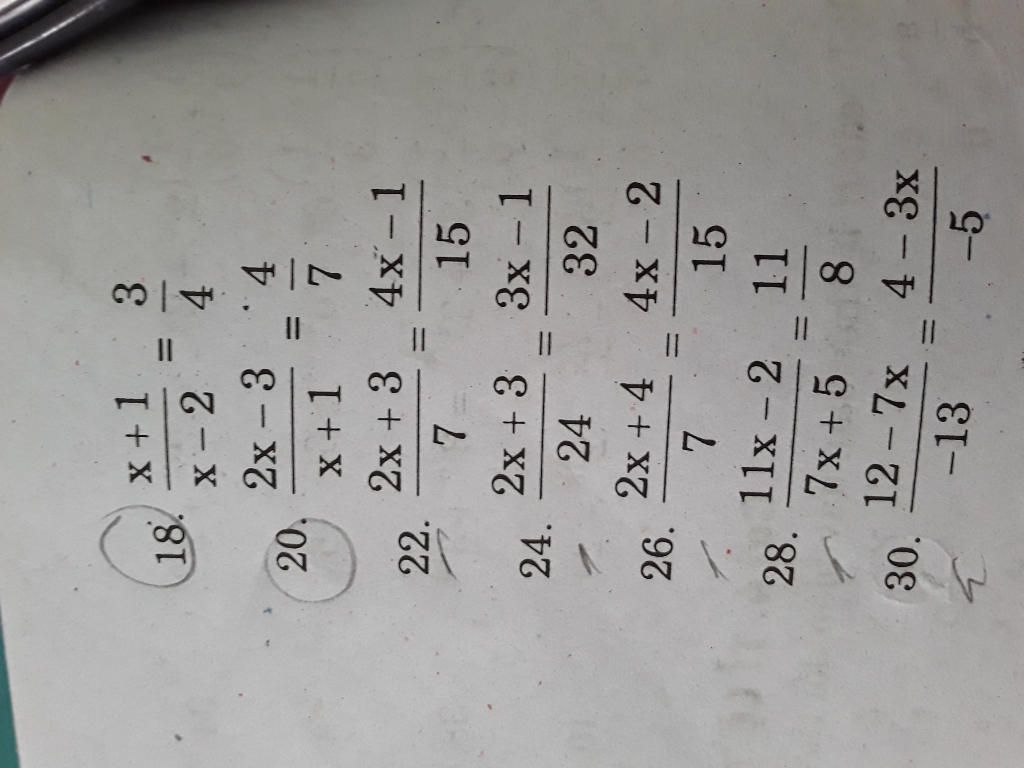 18. x + 1 / x − 2 = 3 / 4
20. 2x − 3 / x + 1 = 4 / 7
22. 2x + 3 / 7 = 4x − 1 / 15
24. 2x + 3 / 24 = 3x − 1 / 32
26. 2x + 4 / 7 = 4x − 2 / 15
28. 11x − 2 / 7x + 5 = 11 / 8
30. 12 − 7x / −13 = 4 − 3x / −5